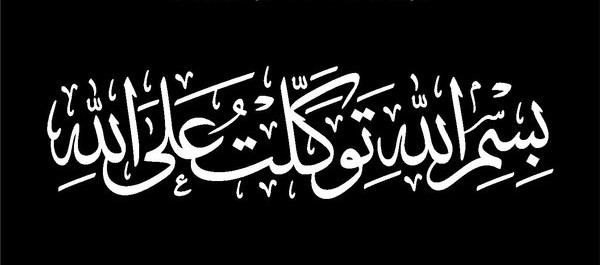 بِسْمِ اللهِ تَوَكَّلْتُ عَلَى اللهِ